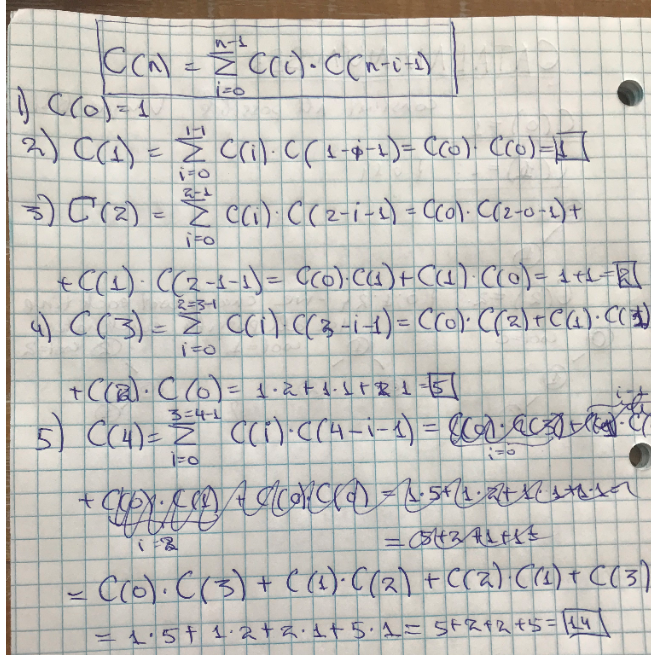 C(n) = \sum_{i=0}^{n-1} C(i) · C(n-i-1)
1) C(0) = 1
2) C(1) = \sum_{i=0}^{1-1} C(i) · C(1-i-1) = C(0) · C(0) = 1
3) C(2) = \sum_{i=0}^{2-1} C(i) · C(2-i-1) = C(0) · C(2-0-1) +
+ C(1) · C(2-1-1) = C(0) · C(1) + C(1) · C(0) = 1+1 = 2
4) C(3) = \sum_{i=0}^{2=3-1} C(i) · C(3-i-1) = C(0) · C(2) + C(1) · C(1)
+ C(2) · C(0) = 1·2 + 1·1 + 2·1 = 5
5) C(4) = \sum_{i=0}^{3=4-1} C(i) · C(4-i-1) =
i=0
i=2
= C(0) · C(3) + C(1) · C(2) + C(2) · C(1) + C(3)
= 1·5 + 1·2 + 2·1 + 5·1 = 5+2+2+5 = 14